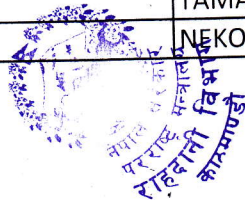 TAMA
NEKO
नेपाल सरकार
परराष्ट्र मन्त्रालय
राहदानी विभाग
काठमाण्डौ